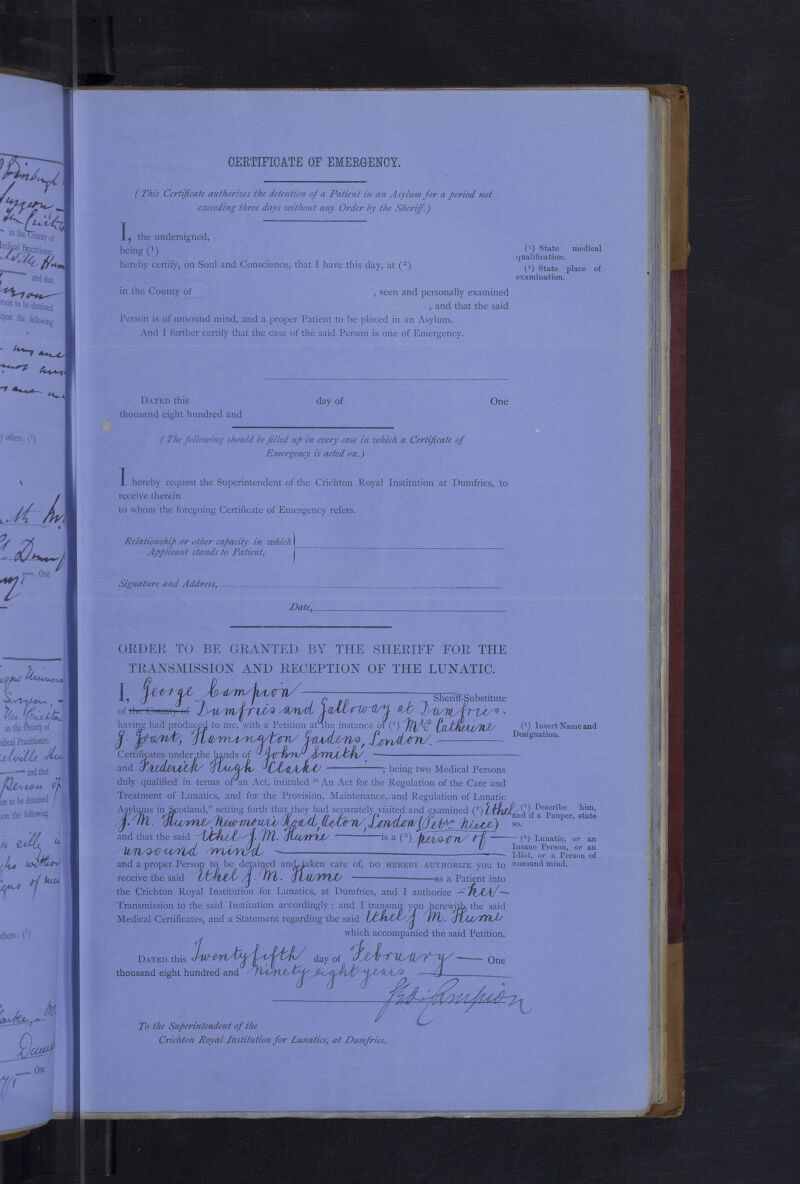 CERTIFICATE OF EMERGENCY.
(This Certificate authorizes the detention of a Patient in an Asylum for a period not
exceeding three days without any Order by the Sheriff.)
I, the undersigned,
being (¹)
hereby certify, on Soul and Conscience, that I have this day, at (²)
in the County of , seen and personally examined
, and that the said
Person is of unsound mind, and a proper Patient to be placed in an Asylum.
And I further certify that the case of the said Person is one of Emergency.
(¹) State medical
qualification.
(²) State place of
examination.
DATED this day of One
thousand eight hundred and
(The following should be filled up in every case in which a Certificate of
Emergency is acted on.)
I hereby request the Superintendent of the Crichton Royal Institution at Dumfries, to
receive therein
to whom the foregoing Certificate of Emergency refers.
Relationship or other capacity in which
Applicant stands to Patient,
Signature and Address,
Date,
ORDER TO BE GRANTED BY THE SHERIFF FOR THE
TRANSMISSION AND RECEPTION OF THE LUNATIC.
I, George Campion Sheriff-Substitute
of the County of Dumfries and Galloway at Dumfries.
having had produced to me, with a Petition at the instance of (¹) Mrs Catherine
J. Grant, Gardens, London.
Certificates under the hands of John Smith
and Frederick Hugh Clarke, being two Medical Persons
duly qualified in terms of an Act, intituled "An Act for the Regulation of the Care and
Treatment of Lunatics, and for the Provision, Maintenance, and Regulation of Lunatic
Asylums in Scotland," setting forth that they had separately visited and examined (²) Ethel
J. M. Hume Road, Acton, London (Petrs Niece)
and that the said Ethel J. M. Hume is a (³) person of
unsound mind
and a proper Person to be detained and taken care of, DO HEREBY AUTHORIZE you to
receive the said Ethel J. M. Hume as a Patient into
the Crichton Royal Institution for Lunatics, at Dumfries, and I authorize her
Transmission to the said Institution accordingly; and I transmit you herewith the said
Medical Certificates, and a Statement regarding the said Ethel J M. Hume
which accompanied the said Petition.
(¹) Insert Name and
Designation.
(²) Describe him,
and if a Pauper, state
so.
(³) Lunatic, or an
Insane Person, or an
Idiot, or a Person of
unsound mind.
DATED this Twenty fifth day of February One
thousand eight hundred and ninety eight years
Geo. Campion
To the Superintendent of the
Crichton Royal Institution for Lunatics, at Dumfries.